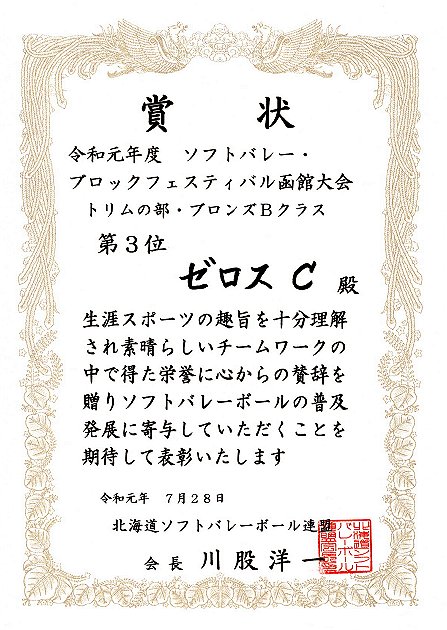 賞状
令和元年度 ソフトバレー・
ブロックフェスティバル函館大会
トリムの部・ブロンズBクラス
第3位
ゼロス C 殿
生涯スポーツの趣旨を十分理解
され素晴らしいチームワークの
中で得た栄誉に心からの賛辞を
贈りソフトバレーボールの普及
発展に寄与していただくことを
期待して表彰いたします
令和元年 7月28日
北海道ソフトバレーボール連盟
会長 川股洋一